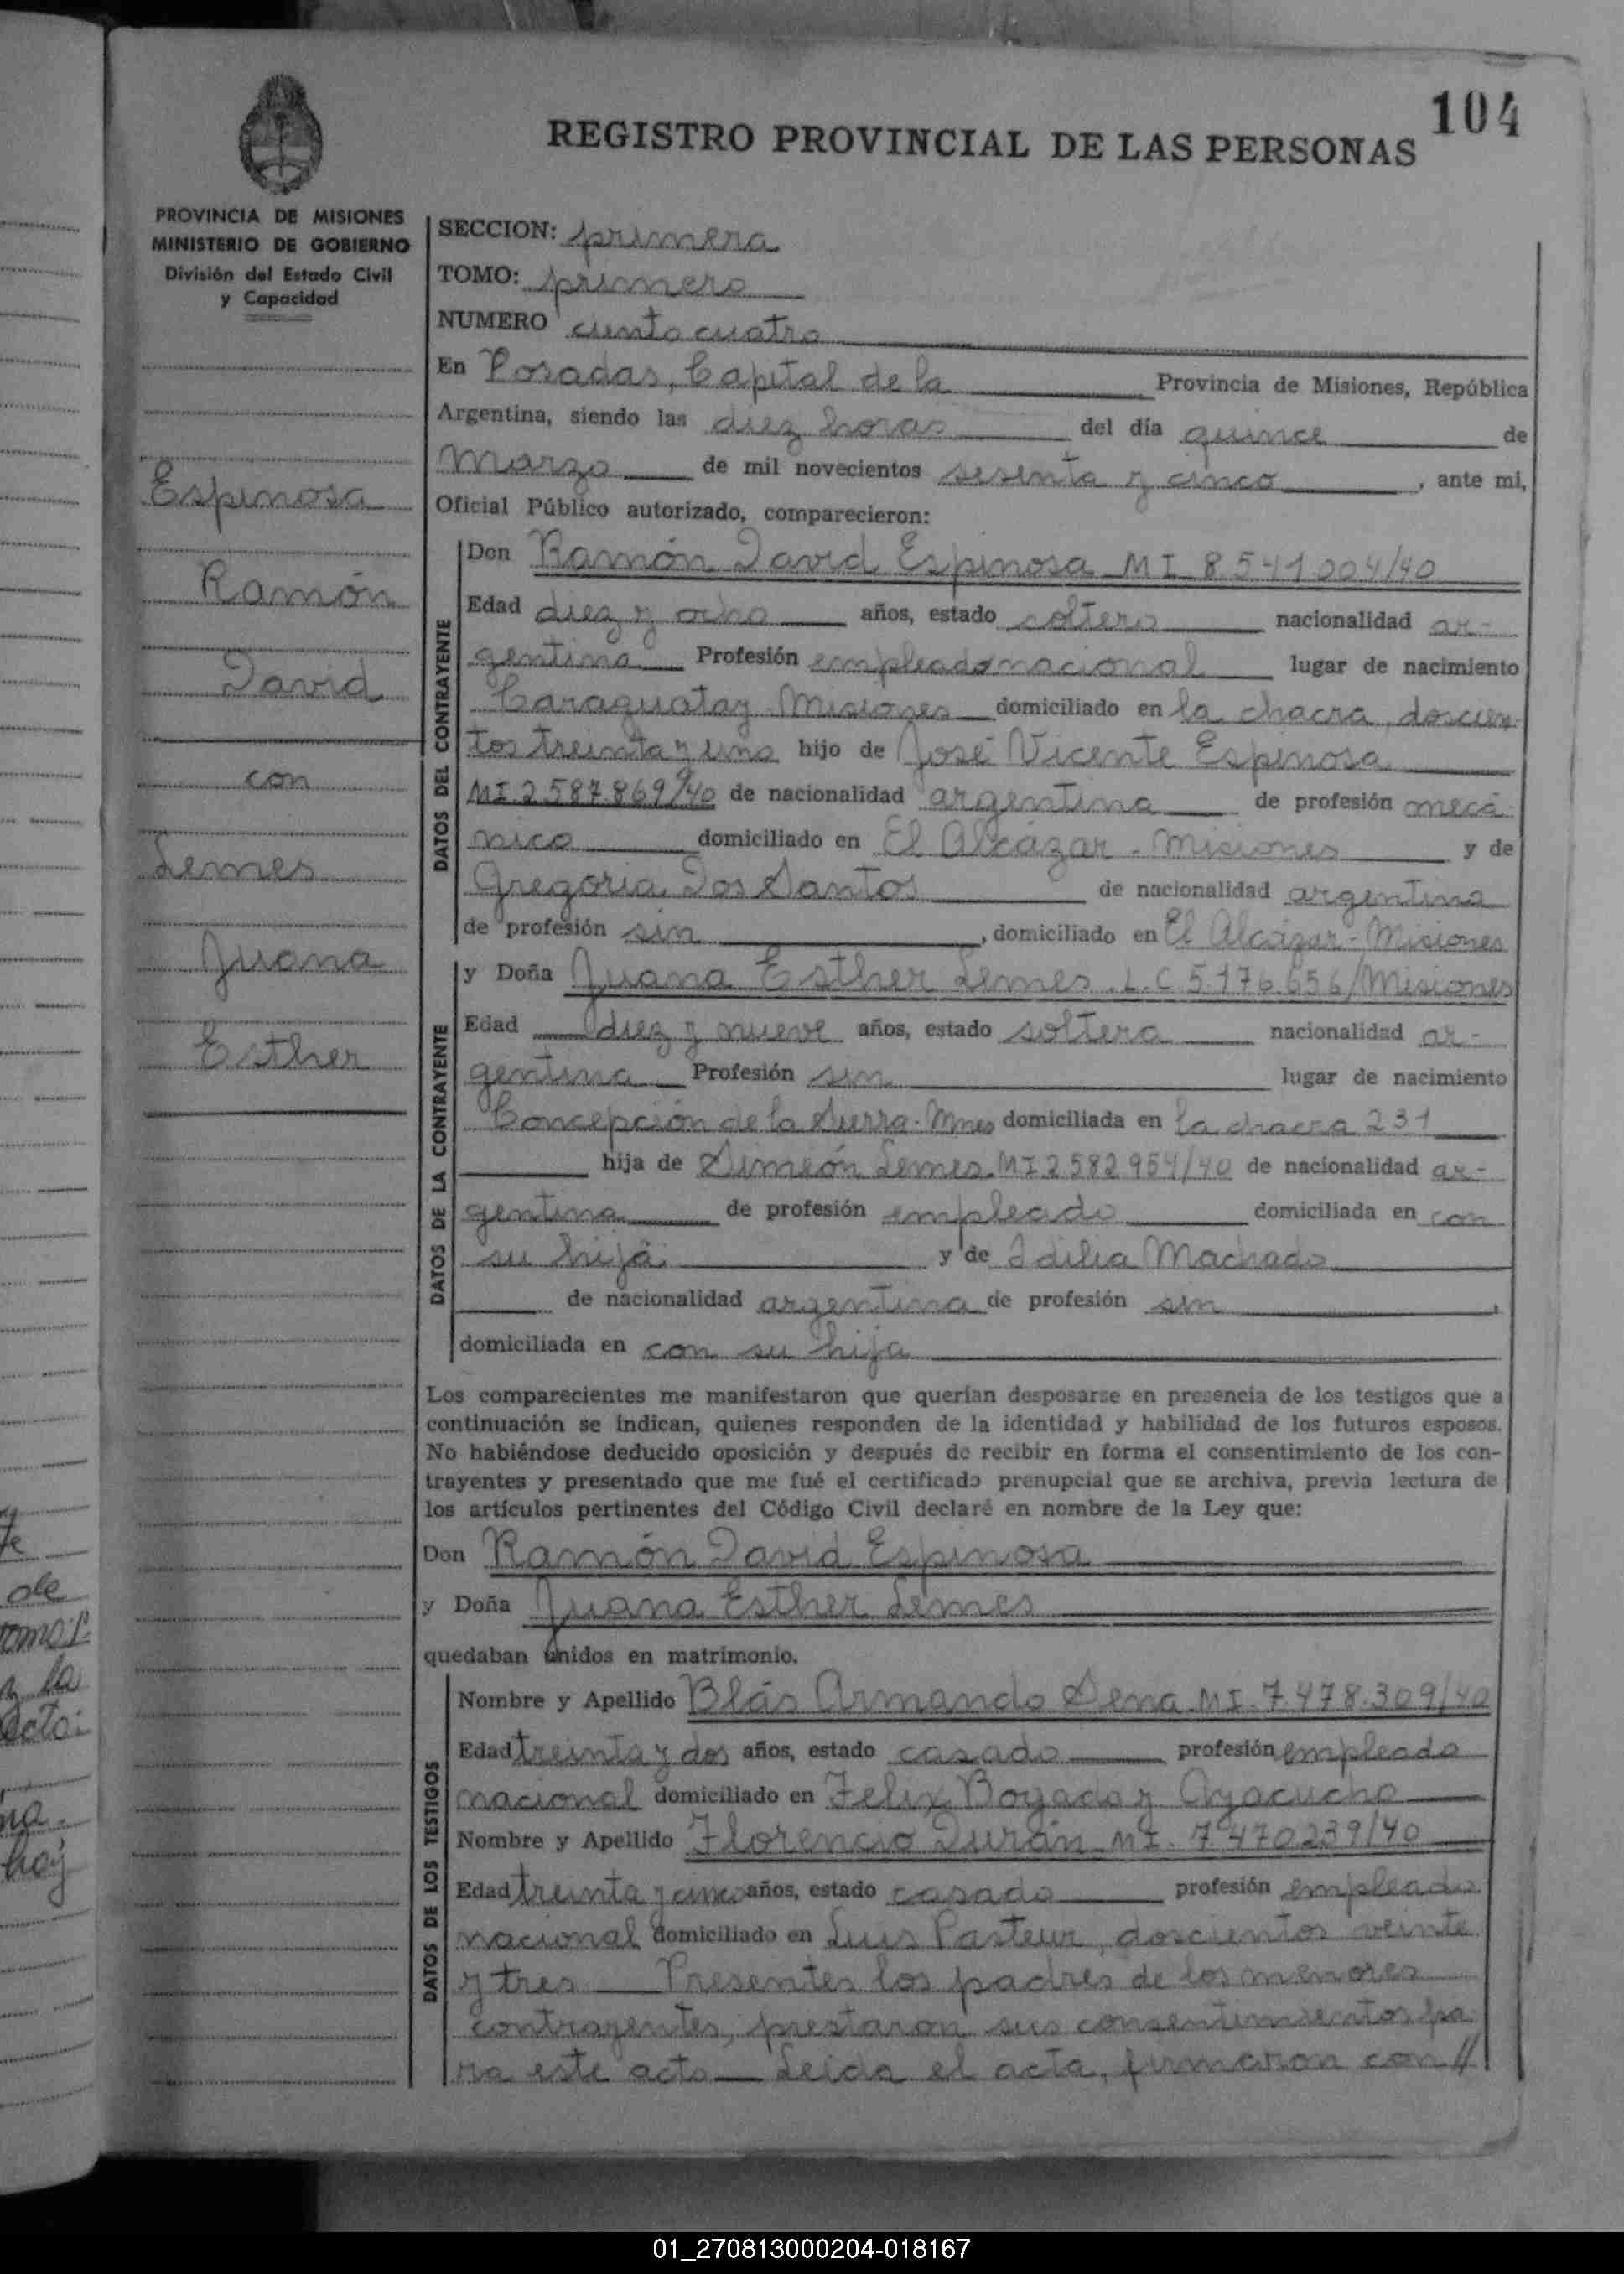 104
REGISTRO PROVINCIAL DE LAS PERSONAS
PROVINCIA DE MISIONES
MINISTERIO DE GOBIERNO
División del Estado Civil
y Capacidad
Espinosa
Ramón
David
con
Lemes
Juana
Esther
SECCION: primera
TOMO: primero
NUMERO ciento cuatro
En Posadas, Capital de la Provincia de Misiones, República
Argentina, siendo las diez horas del día quince de
Marzo de mil novecientos sesenta y cinco, ante mi,
Oficial Público autorizado, comparecieron:
DATOS DEL CONTRAYENTE
Don Ramón David Espinosa MI 8.541.004/40
Edad diez y ocho años, estado soltero nacionalidad ar-
gentina Profesión empleado nacional lugar de nacimiento
Caraguatay Misiones domiciliado en la chacra, doscien-
tos treinta y uno hijo de José Vicente Espinosa
MI.2.587.869/40 de nacionalidad argentina de profesión mecá-
nico domiciliado en El Alcázar - Misiones y de
Gregoria Dos Santos de nacionalidad argentina
de profesión sin, domiciliado en El Alcázar - Misiones
DATOS DE LA CONTRAYENTE
y Doña Juana Esther Lemes. L.C 5.176.656/Misiones
Edad diez y nueve años, estado soltera nacionalidad ar-
gentina Profesión sin lugar de nacimiento
Concepción de la Sierra - Mnes domiciliada en la chacra 231
hija de Simeón Lemes. MI 2.582.954/40 de nacionalidad ar-
gentina de profesión empleado domiciliada en con
su hija y de Idilia Machado
de nacionalidad argentina de profesión sin,
domiciliada en con su hija
Los comparecientes me manifestaron que querían desposarse en presencia de los testigos que a
continuación se indican, quienes responden de la identidad y habilidad de los futuros esposos.
No habiéndose deducido oposición y después de recibir en forma el consentimiento de los con-
trayentes y presentado que me fué el certificado prenupcial que se archiva, previa lectura de
los artículos pertinentes del Código Civil declaré en nombre de la Ley que:
Don Ramón David Espinosa
y Doña Juana Esther Lemes
quedaban unidos en matrimonio.
DATOS DE LOS TESTIGOS
Nombre y Apellido Blás Armando Sena MI. 7.478.309/40
Edad treinta y dos años, estado casado profesión empleado
nacional domiciliado en Felix Bogado y Ayacucho
Nombre y Apellido Florencio Durán MI. 7.470.239/40
Edad treinta y cinco años, estado casado profesión empleado
nacional domiciliado en Luis Pasteur, doscientos veinte
y tres Presentes los padres de los menores
contrayentes, prestaron sus consentimientos pa-
ra este acto Leida el acta, firmaron con//
de
la
hoy
01_270813000204-018167